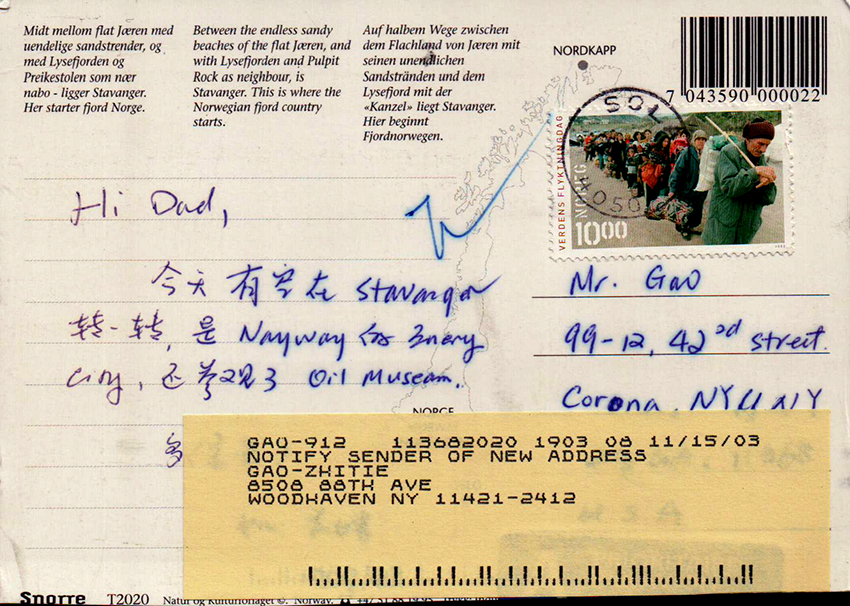 Midt mellom flat Jæren med
uendelige sandstrender, og
med Lysefjorden og
Preikestolen som nær
nabo - ligger Stavanger.
Her starter fjord Norge.
Between the endless sandy
beaches of the flat Jæren, and
with Lysefjorden and Pulpit
Rock as neighbour, is
Stavanger. This is where the
Norwegian fjord country
starts.
Auf halbem Wege zwischen
dem Flachland von Jæren mit
seinen unendlichen
Sandstränden und dem
Lysefjord mit der
«Kanzel» liegt Stavanger.
Hier beginnt
Fjordnorwegen.
NORDKAPP
7 043590 000022
VERDENS FLYKTNINGDAG
NOREG
10.00
SOL
Hi Dad,
今天有空在 Stavanger
转一转, 是 Nayway 的 Enery
City, 还参观了 Oil Museam.
多
Mr. Gao
99-12, 42nd street.
Corona, NY
NORGE
GAO-912 113682020 1903 08 11/15/03
NOTIFY SENDER OF NEW ADDRESS
GAO-ZHITIE
8508 88TH AVE
WOODHAVEN NY 11421-2412
U S A
Snorre T2020 Natur og Kulturforlaget ©. Norway.